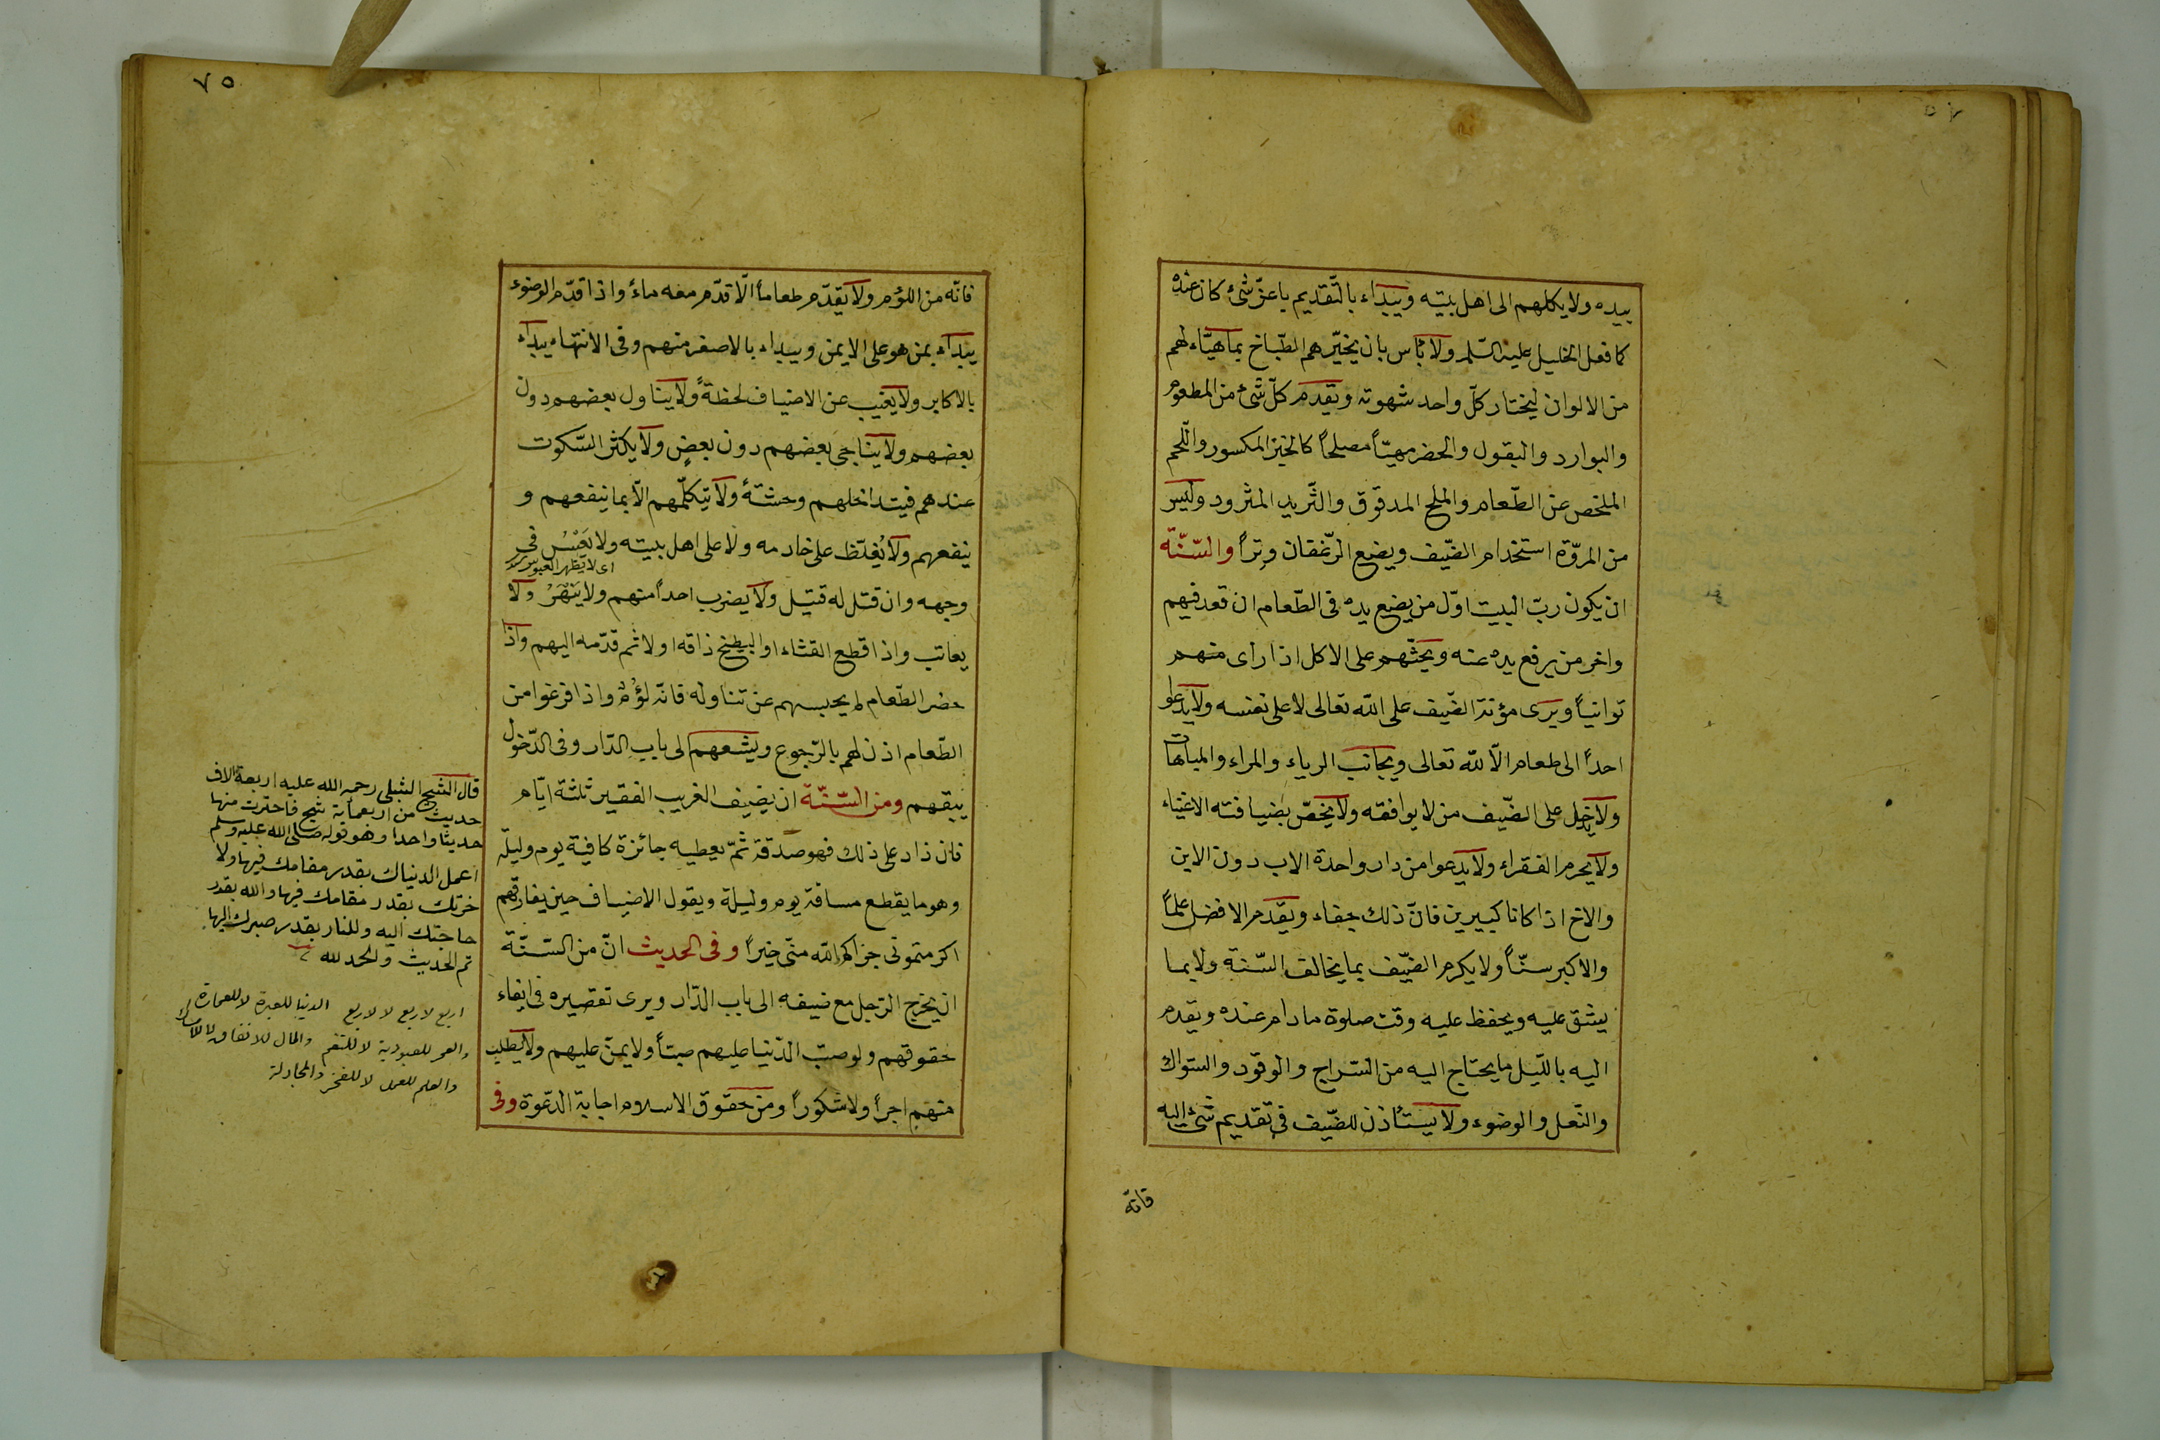 بيده ولا يكلهم الى اهل بيته ويبداء بالتّقديم باعزّ شئ كان عنده
كما فعل الخليل عليه السّلم ولا بٔاس بان يخيّرهم الطبّاخ بما هيّاء لهم
من الالوان ليختار كلّ واحد شهوته ويقدم كلّ شئ من المطعوم
والبوارد والبقول والخضر مهيّأ مصلحاً كالخبز المكسور واللّحم
الملخص عن الطّعام والملح المدقوق والثّريد المثرود وليس
من المروّة استخدام الضّيف ويضع الرّغفان وتراً والسّنّة
ان يكون ربّ البيت اوّل من يضع يده فى الطّعام ان قعد فيهم
واخر من يرفع يده عنه ويحثّهم على الاكل اذا رأى منهم
توانيأ ويرى مؤنة الضّيف على الله تعالى لا على نفسه ولا يدعو
احداً الى طعام الّا لله تعالى ويجانب الرياء والمراء والمباهات
ولا يدخل على الضّيف من لا يوافقه ولا يخصّ بضيافته الاغنياء
ولا يحرم الفقراء ولا يدعوا من دار واحدة الاب دون الابن
والاخ اذا كانا كبيرين فانّ ذلك جفاء ويقّدم الافضل علماً
والاكبر سنّاً ولا يكرم الضيّف بما يخالف السّنة ولا بما
يشق عليه ويحفظ عليه وقت صلوة مادام عنده ويقدم
اليه بالليل ما يحتاج اليه من السّراج والوقود والسّواك
والنّعل والوضوء ولا يستٔاذن للضّيف فى تقديم شئ اليه
فانّه
٧٥
فانّه من اللؤم ولا يقدّم طعاماً الّا قدّم معه ماءً واذا قدّم الوضوء
يبداء بمن هو على الايمن ويبداء بالاصغر منهم وفى الانتهاء يبداء
بالاكابر ولا يغيب عن الاضياف لحظةً ولا يناول بعضهم دون
بعضهم ولا يناجى بعضهم دون بعضٍ ولا يكثر السّكوت
عندهم فيتداخلهم وحشة ولا يتكلّمهم الّا بما ينفعهم و
ينفعهم ولا يُغلّظ على خادمه ولا على اهل بيته ولا يَعْبِسْ فى
اى لا يظهر العبوس
وجهه وان قتل له قتيل ولا يضرب احداً منهم ولا يَنْهَرْ ولا
يعاتب واذا قطع القثاء او البطيخ ذاقه اولا ثم قدّمه اليهم واذا
حضر الطّعام لم يحبسهم عن تناوله فانّه لؤمٌ واذا فرغوا من
الطّعام اذن لهم بالرّجوع ويشيعهم الى باب الدّار وفى الدّخول
يبقهم ومن السّنّة ان يضيف الغريب الفقير ثلثة ايّام
فان زاد على ذلك فهو صدقة ثمّ يعطيه جائزة كافية يوم وليلة
وهو ما يقطع مسافة يوم وليلة ويقول الاضياف حين يفارقهم
اكرمتمونى جزاكم الله منّى خيراً وفى الحديث انّ من السّنّة
ان يخرج الرّجل مع ضيفه الى باب الدّار ويرى تقصيره فى ايفاء
حقوقهم ولو صبّ الدّنيا عليهم صبّاً ولا يمنّ عليهم ولا يطلب
منهم اجراً ولا شكوراً ومن حقوق الاسلام اجابة الدّعوة وفى
قال الشيخ الشبلى رحمه الله عليه اربعة الاف
حديث من اربعمأية شيخ فاخترت منها
حديثا واحدا وهو قوله صلى الله عليه وسلم
اعمل الدنياك بقدر مقامك فيها ولا
خرتك بقدر مقامك فيها والله بقدر
حاجتك اليه وللنار بقدر صبرك اليها
تم الحديث والحمد لله
اربع لاربع لا لاربع الدنيا للعبرة لا للعمارة
والعمر للعبودية لا للتنعم والمال للانفاق لا للامساك
والعلم للعمل لا للفخر والمجادلة